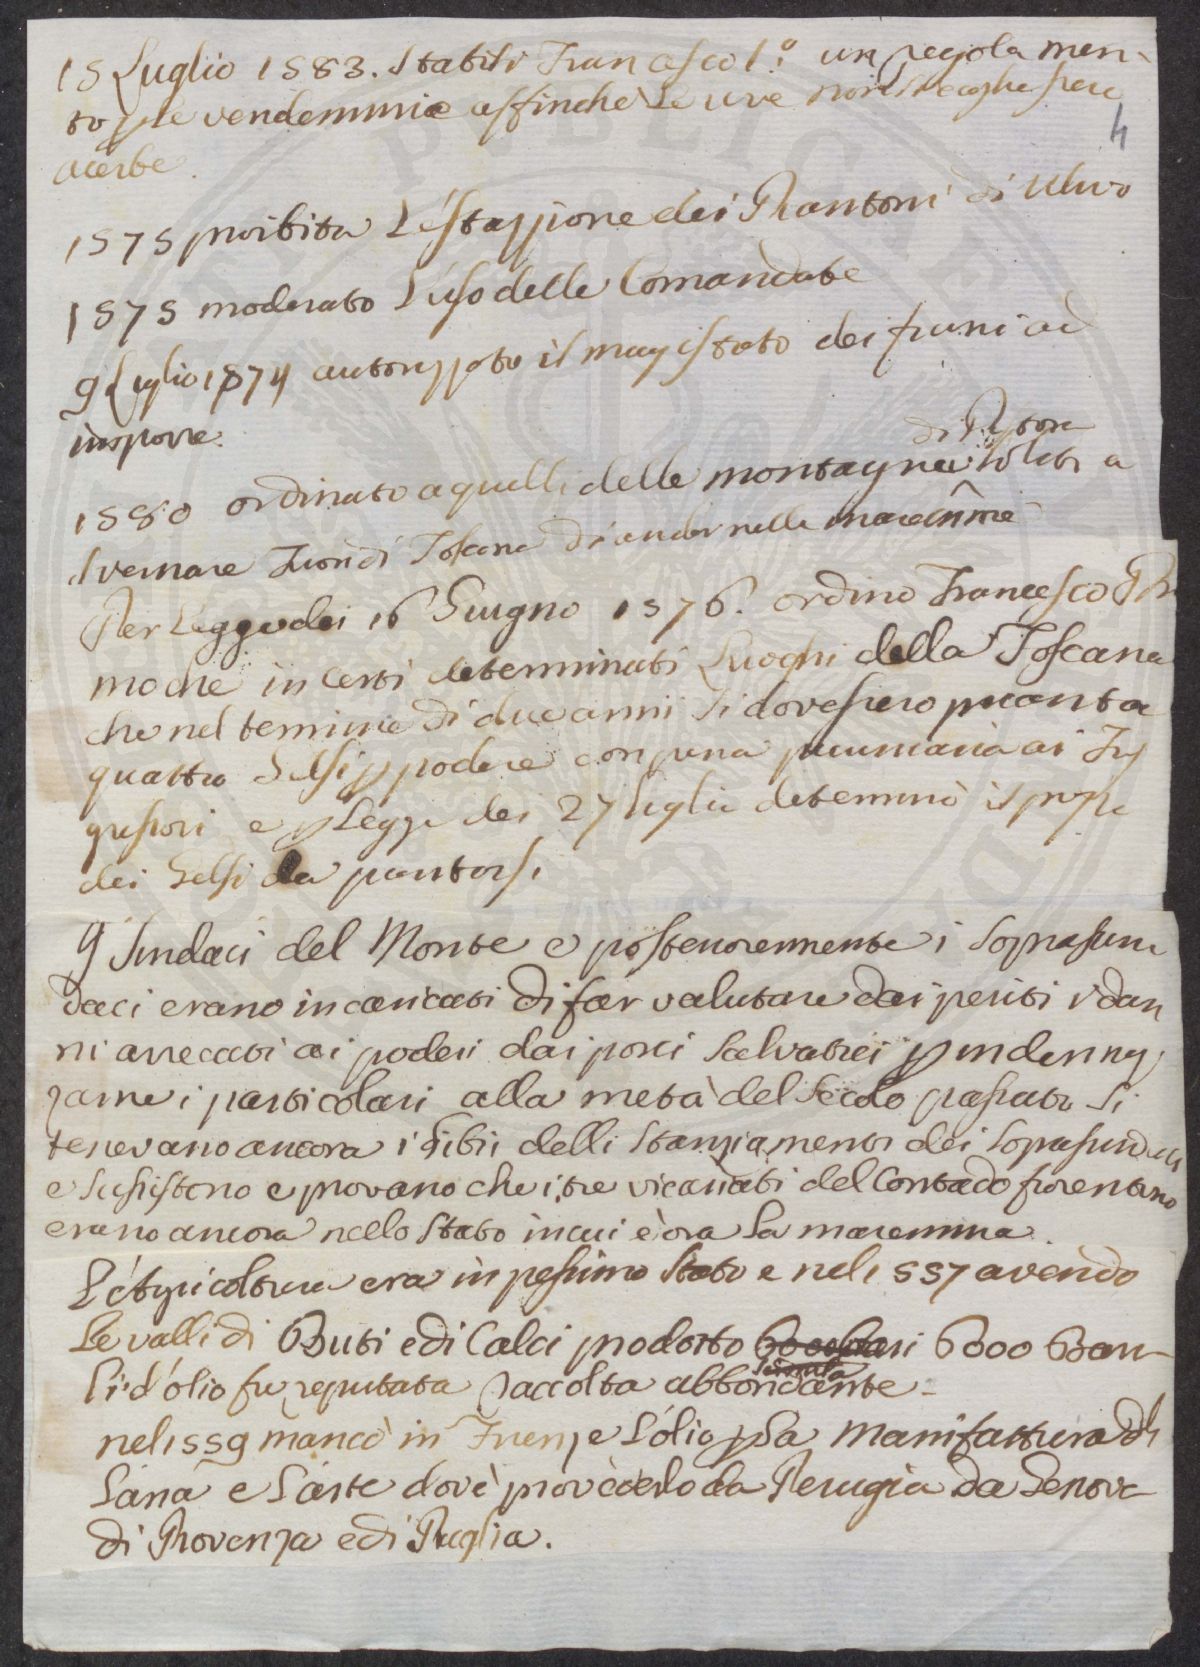 15 Luglio 1583. Stabilì Francesco 1.º un regolamen-
to p le vendemmie affinchè le uve non si
4
acerbe.
1575 proibita l'estazzione dei Piantoni di Ulivo
1575 moderato l'uso delle Comandate
9 Luglio 1574 autorizzato il magistrato dei fiumi ad
imporre.
di Pistoia
1580 ordinato a quelli delle montagne soliti a
svernare fuori di Toscana di andar nelle maremme
Per Legge dei 16 Giugno 1576. ordinò Francesco Pri
mo che in certi determinati Luoghi della Toscana
che nel termine di due anni si dovessero piantar
quattro Gelsi p podere con pena pecuniaria ai Tras
gressori e p Legge dei 27 luglio determinò il prezzo
dei Gelsi da piantarsi
I Sindaci del Monte e posteriormente i Soprasin
daci erano incaricati di far valutare dai periti i dan
ni arrecati ai poderi dai porci salvatici p indenniz
zarne i particolari alla metà del Secolo passato si
tenevano ancora i Libri delli Stanziamenti dei Soprasindaci
e sussistono e provano che i tre vicariati del Contado fiorentino
erano ancora nello Stato in cui è ora la maremma.
L'Agricoltura era in pessimo Stato e nel 1557 avendo
le valli di Buti e di Calci prodotto 6000 Bari
li d'olio fu reputata raccolta abbondante
nel 1559 mancò in Firenze l'olio p la Manifattura di
Lana e l'arte dovè provederlo da Perugia da Genova
di Provenza e di Puglia.